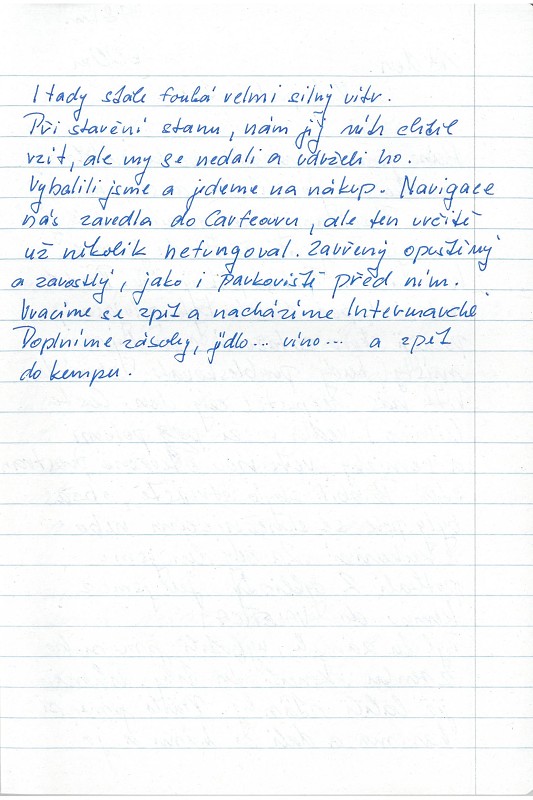 I tady stále fouká velmi silný vítr.
Při stavění stanu, nám jij vítr chtěl
vzít, ale my se nedali a udrželi ho.
Vybalili jsme a jdeme na nákup. Navigace
nás zavedla do Carfeouru, ale ten určitě
už několik nefungoval. Zavřený opuštěný
a zarostlý, jako i parkoviště před ním.
Vracíme se zpět a nacházíme Intermarché
Doplníme zásoby, jídlo... víno... a zpět
do kempu.